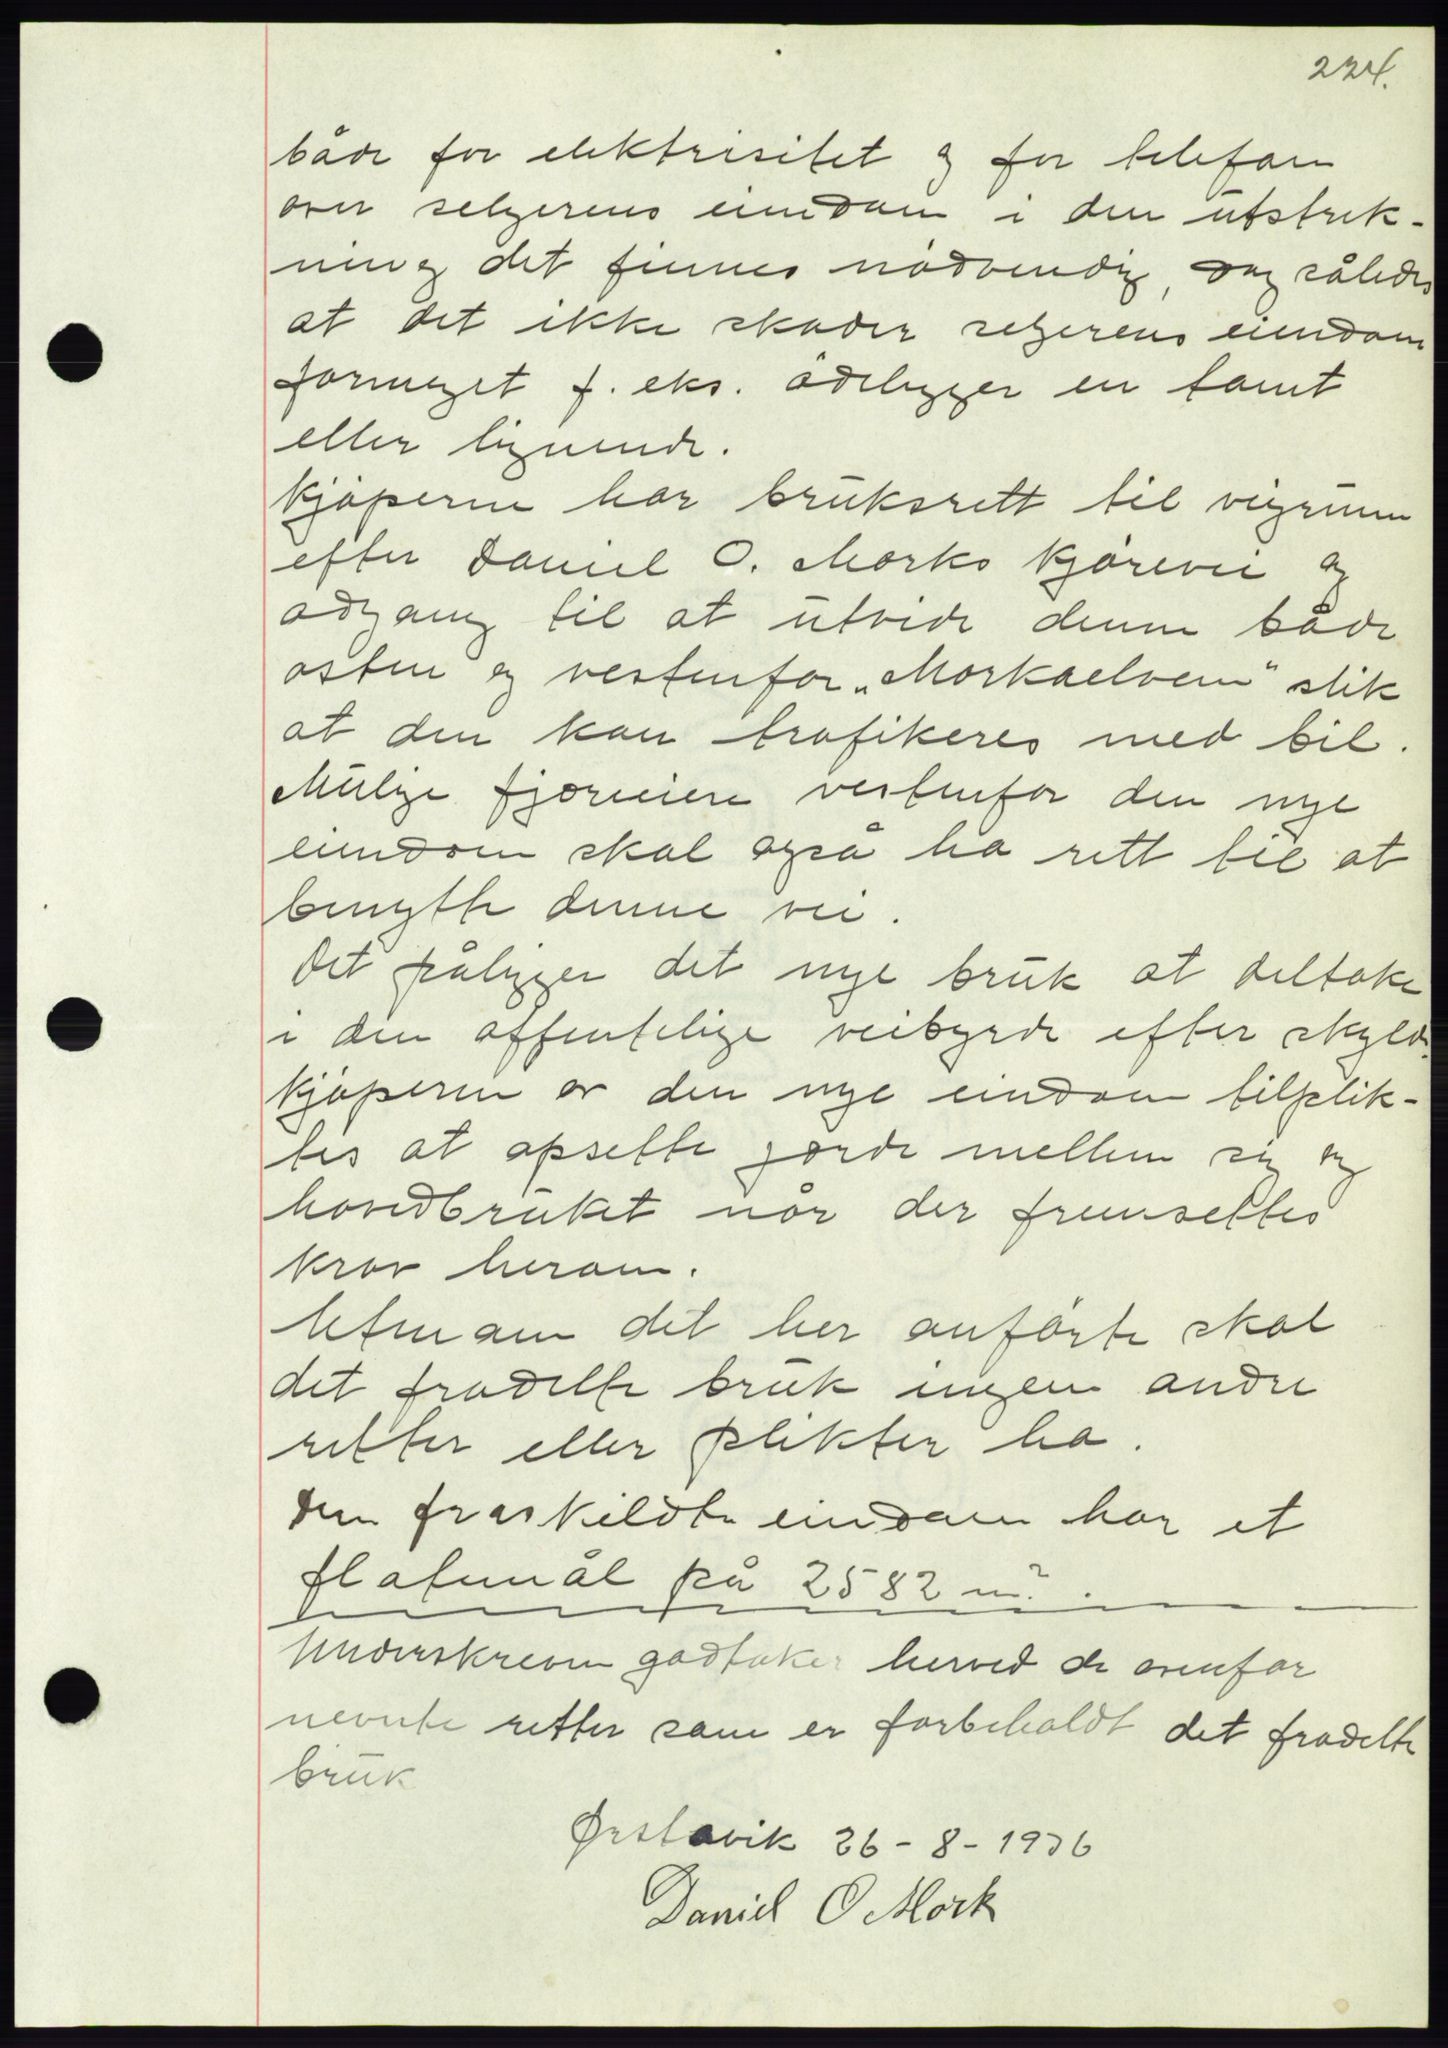 224.
både for elektrisitet og for telefon
over selgerens eiendom i den utstrek-
ning det finnes nödvendig, og således
at det ikke skader selgerens eiendom
formeget f. eks. ödelegger en tomt
eller lignende.
Kjöperne har bruksrett til veigrunn
efter Daniel O. Morks kjörevei og
adgang til at utvide denne både
østen og vestenfor „Morkaelven" slik
at den kan trafikeres med bil.
Mulige fjøreeiere vestenfor den nye
eiendom skal også ha rett til at
benytte denne vei.
Det påligger det nye bruk at deltake
i den offentelige veibyrde efter skyld.
Kjöperne av den nye eiendom tilplik-
tes at opsette gjerde mellem sig og
hovedbruket når der fremsettes
krav herom.
Utenom det her anförte skal
det fradelte bruk ingen andre
retter eller plikter ha.
Den fraskildte eiendom har et
flatemål på 2582 m².
Underskreven godtaker herved de ovenfor
nevnte retter som er forbeholdt det fradelte
bruk
Ørstavik 26-8-1936
Daniel O Mork